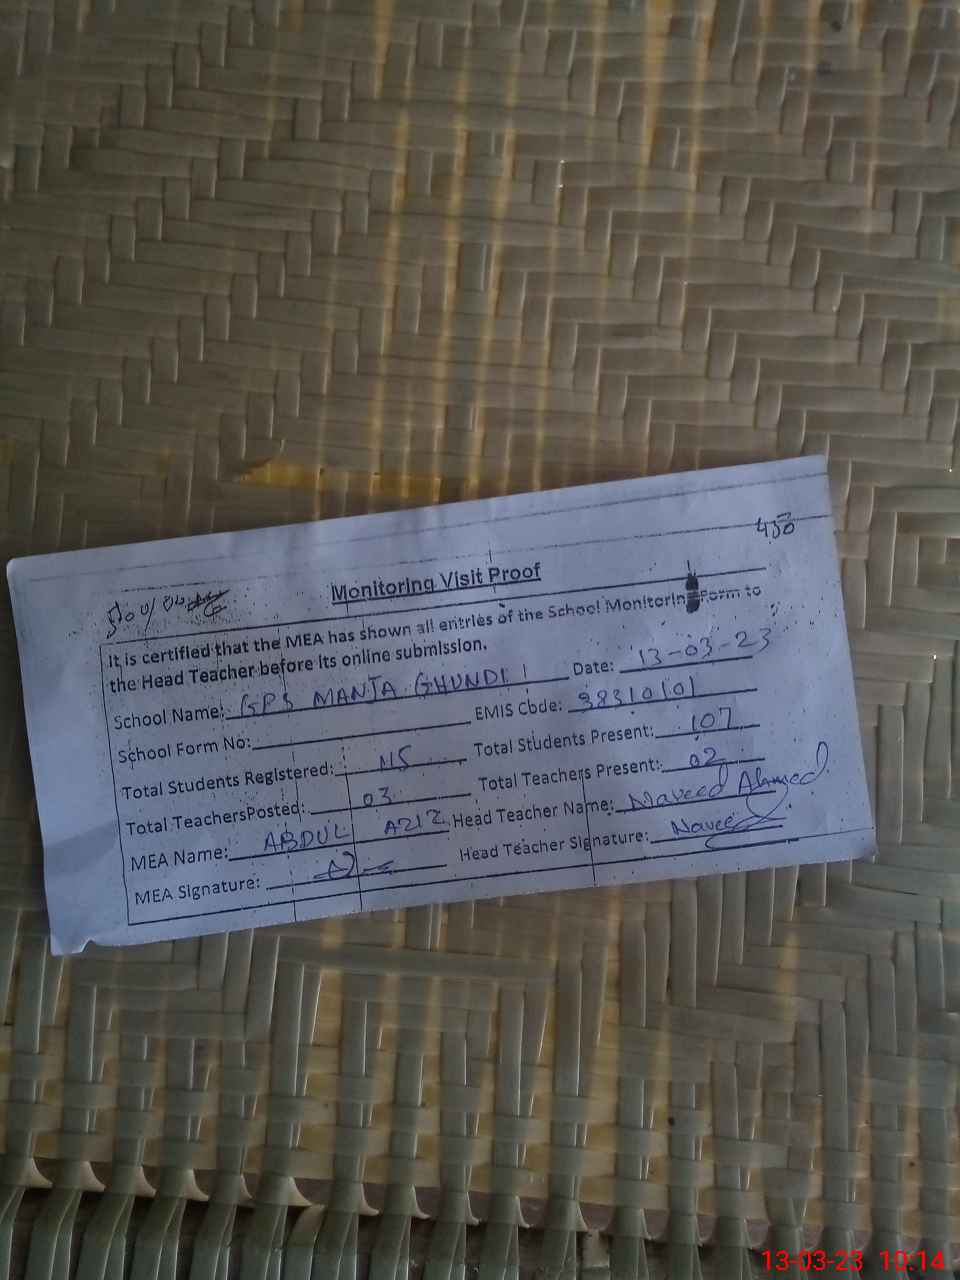 450
Monitoring Visit Proof
It is certified that the MEA has shown all entries of the School Monitoring Form to
the Head Teacher before its online submission.
School Name: GPS MANJA GHUNDI Date: 13-03-23
School Form No: EMIS Code: 38310101
Total Students Registered: Total Students Present: 107
Total TeachersPosted: 03 Total Teachers Present: 02
MEA Name: ABDUL AZIZ Head Teacher Name: Naveed Ahmed
MEA Signature: Head Teacher Signature: Naveed
13-03-23 10:14